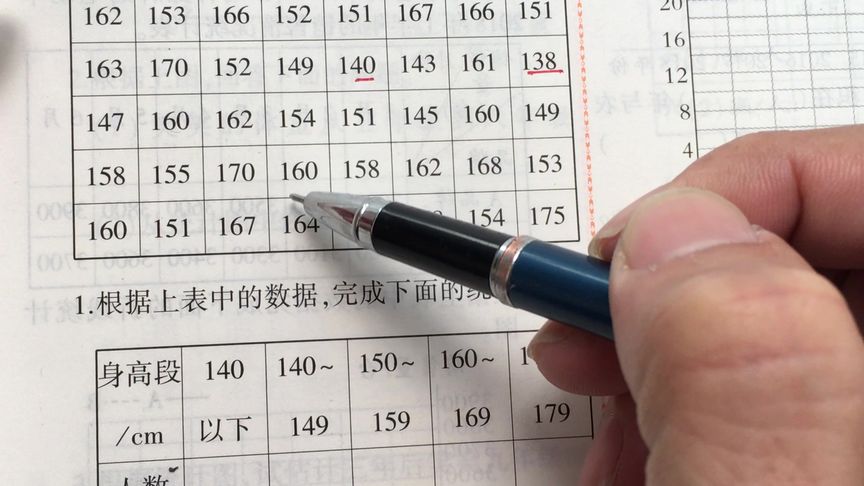 162 153 166 152 151 167 166 151
163 170 152 149 140 143 161 138
147 160 162 154 151 145 160 149
158 155 170 160 158 162 168 153
160 151 167 164 154 175
1.根据上表中的数据,完成下面的统
身高段 140 140~ 150~ 160~ 1
/cm 以下 149 159 169 179
人数
20
16
12
8
4